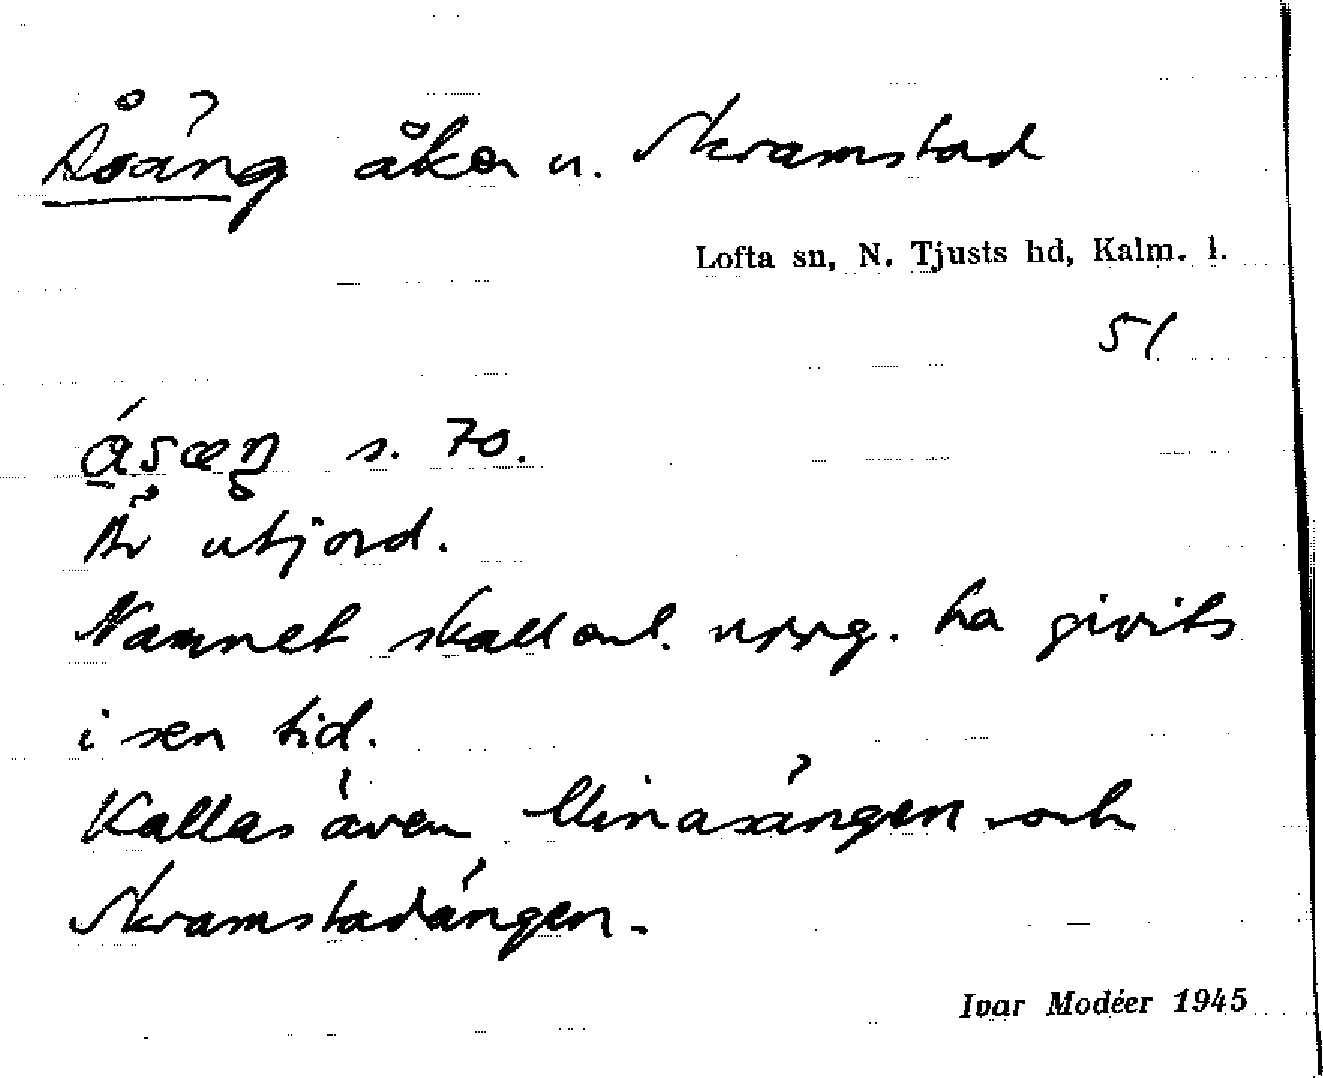 Åsäng åker u. Skramstad
Lofta sn, N. Tjusts hd, Kalm. l.
51
s. 70.
Är utjord.
Namnet skall enl. uppg. ha givits
i sen tid.
Kallas även och
Skramstadängen.
Ivar Modéer 1945